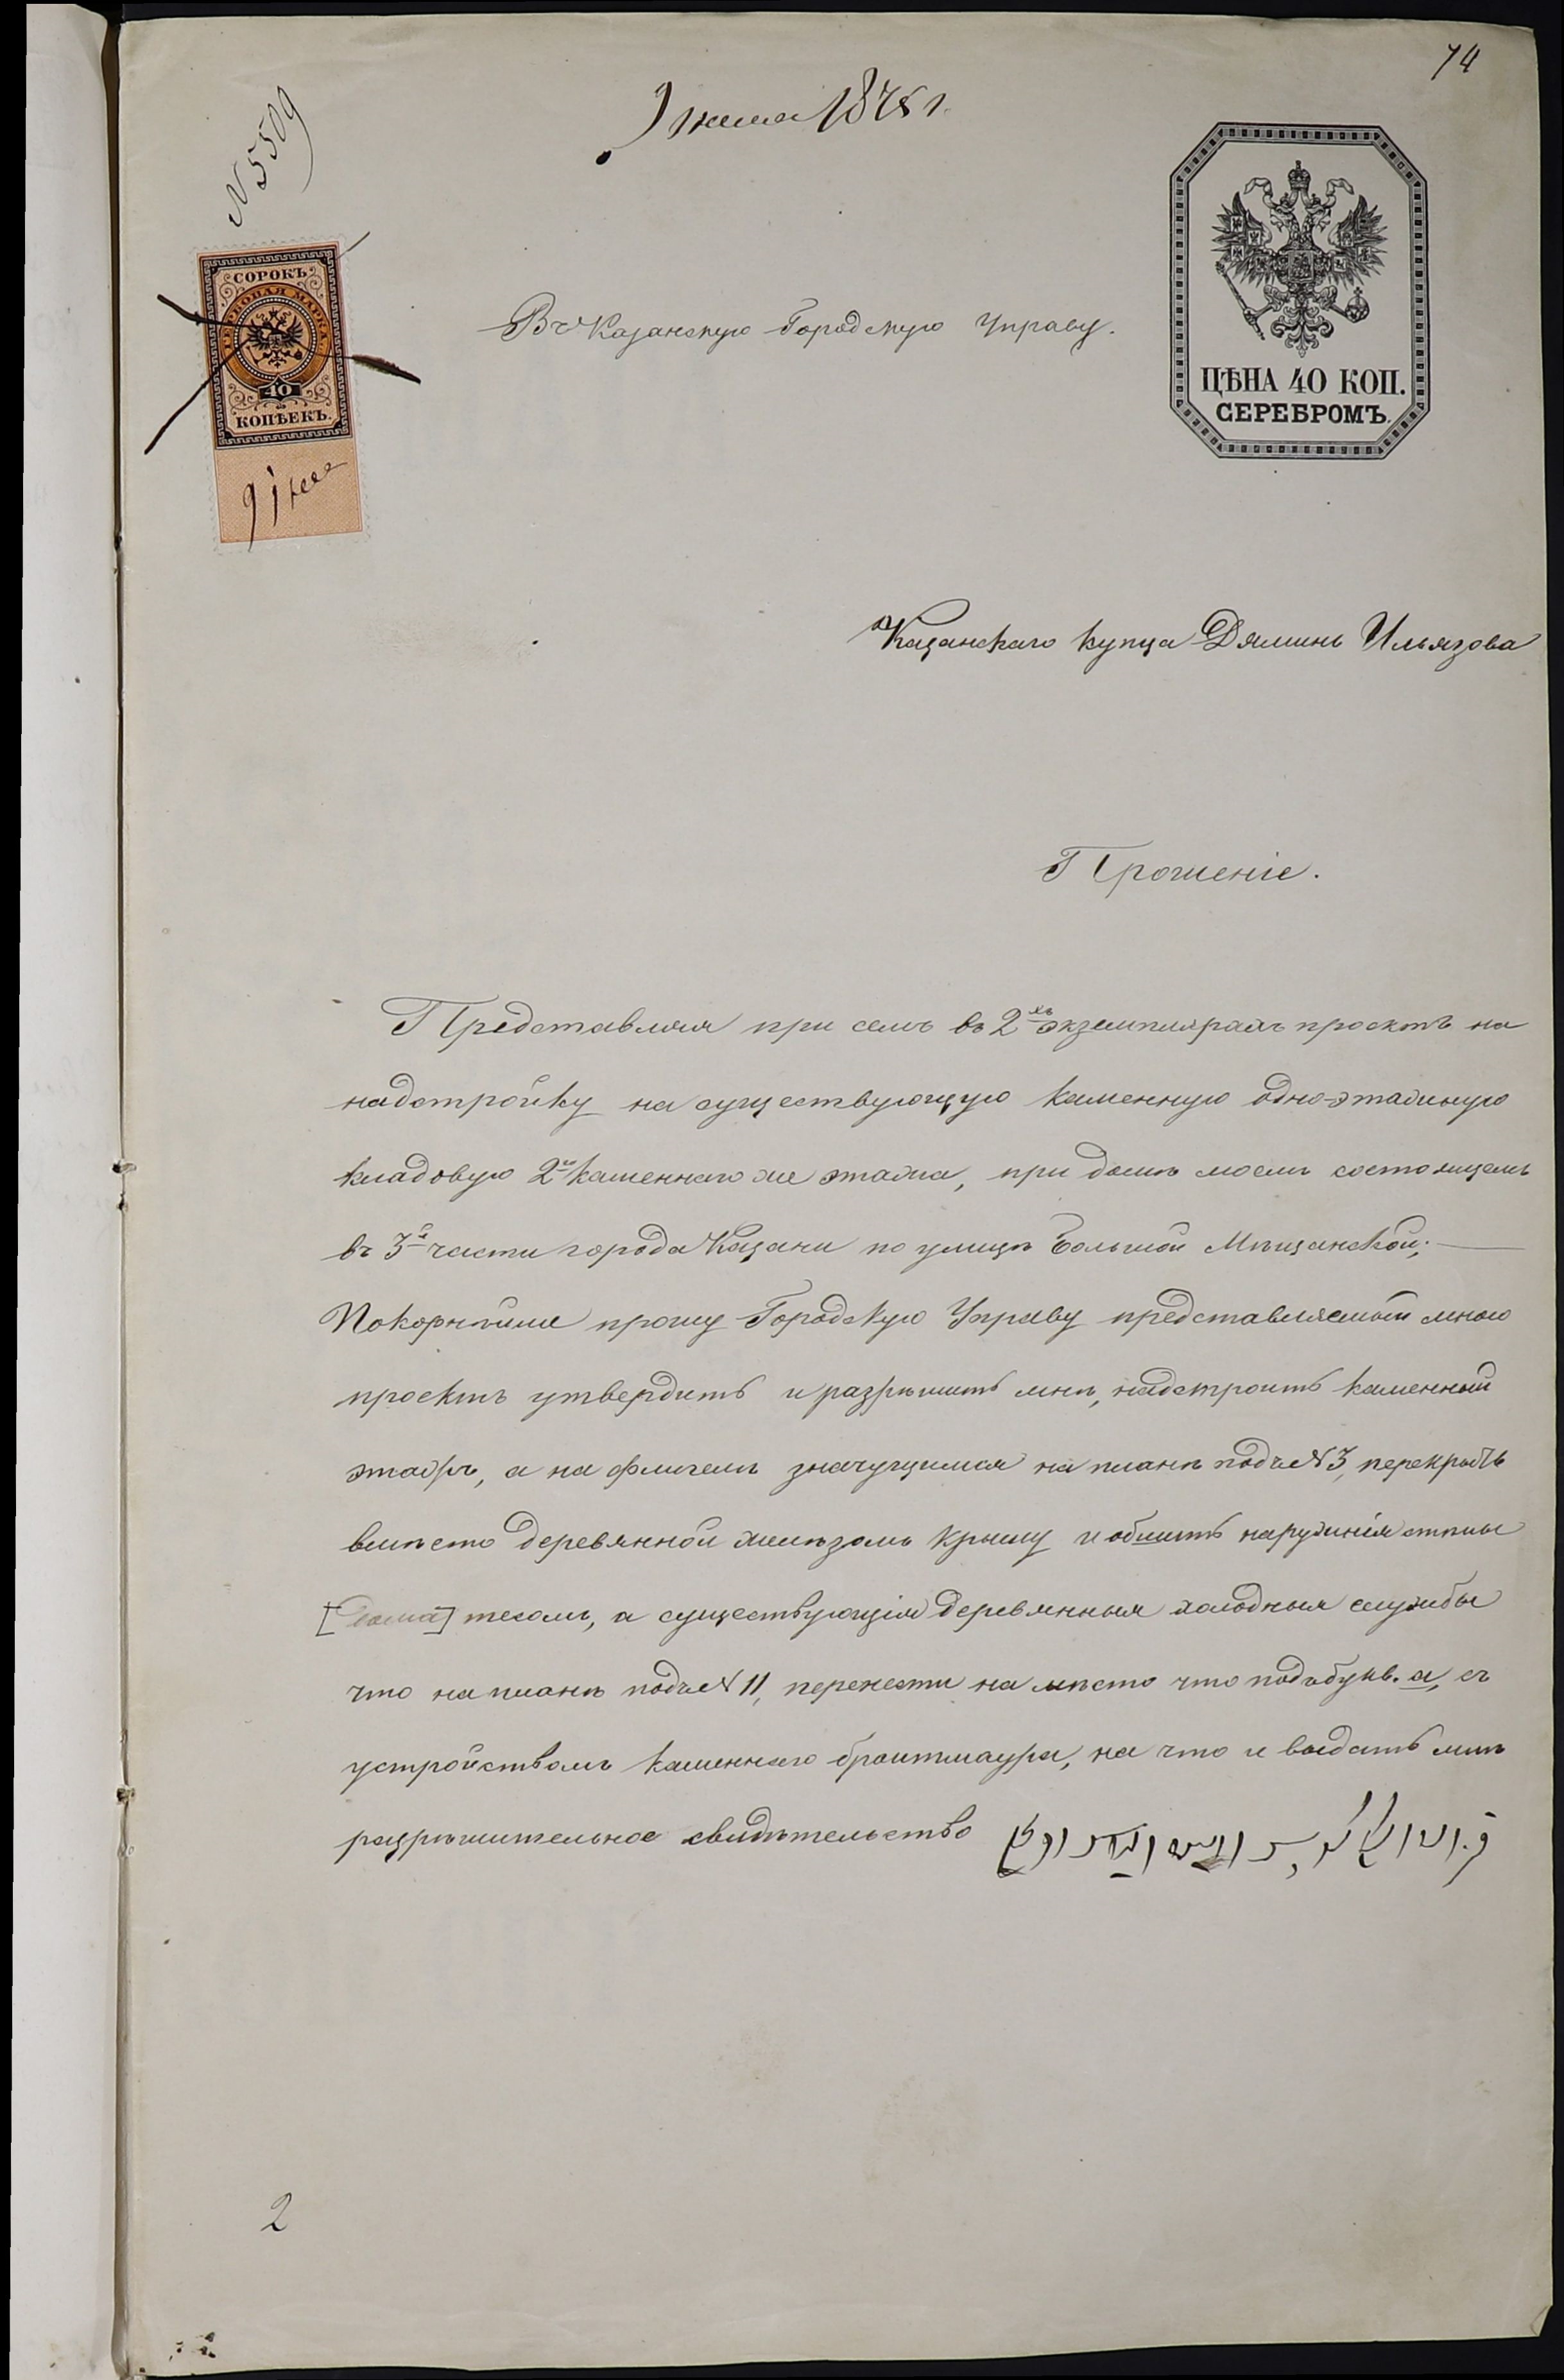 74
9 июня 1878 г.
N 5509
СОРОКЪ
ГЕРБОВАЯ МАРКА
40
КОПѢЕКЪ.
9 іюня
ЦѢНА 40 КОП.
СЕРЕБРОМЪ.
Въ Казанскую Городскую Управу.
Казанскаго купца Дяминь Ильязова
Прошеніе.
Представляя при семъ въ 2хъ экземплярахъ проэктъ на
надстройку на существующую каменную одно-этажную
кладовую 2го каменнаго же этажа, при домѣ моемъ состоящемъ
въ 3й части города Казани по улицѣ Большой Мѣщанской;
Покорнѣйше прошу Городскую Управу представляемый мною
проектъ утвердить и разрѣшить мнѣ, надстроить каменный
этажъ, а на флигелѣ значущимся на планѣ подъ N 3, перекрыть
вмѣсто деревянной желѣзомъ крышу и обшить наружнія стѣны
[дома] тесомъ, а существующія деревянныя холодныя службы
что на планѣ подъ N 11, перенести на мѣсто что подъ букв. а, съ
устройствомъ каменнаго брантмаура, на что и выдать мнѣ
разрѣшительное свидѣтельство
2